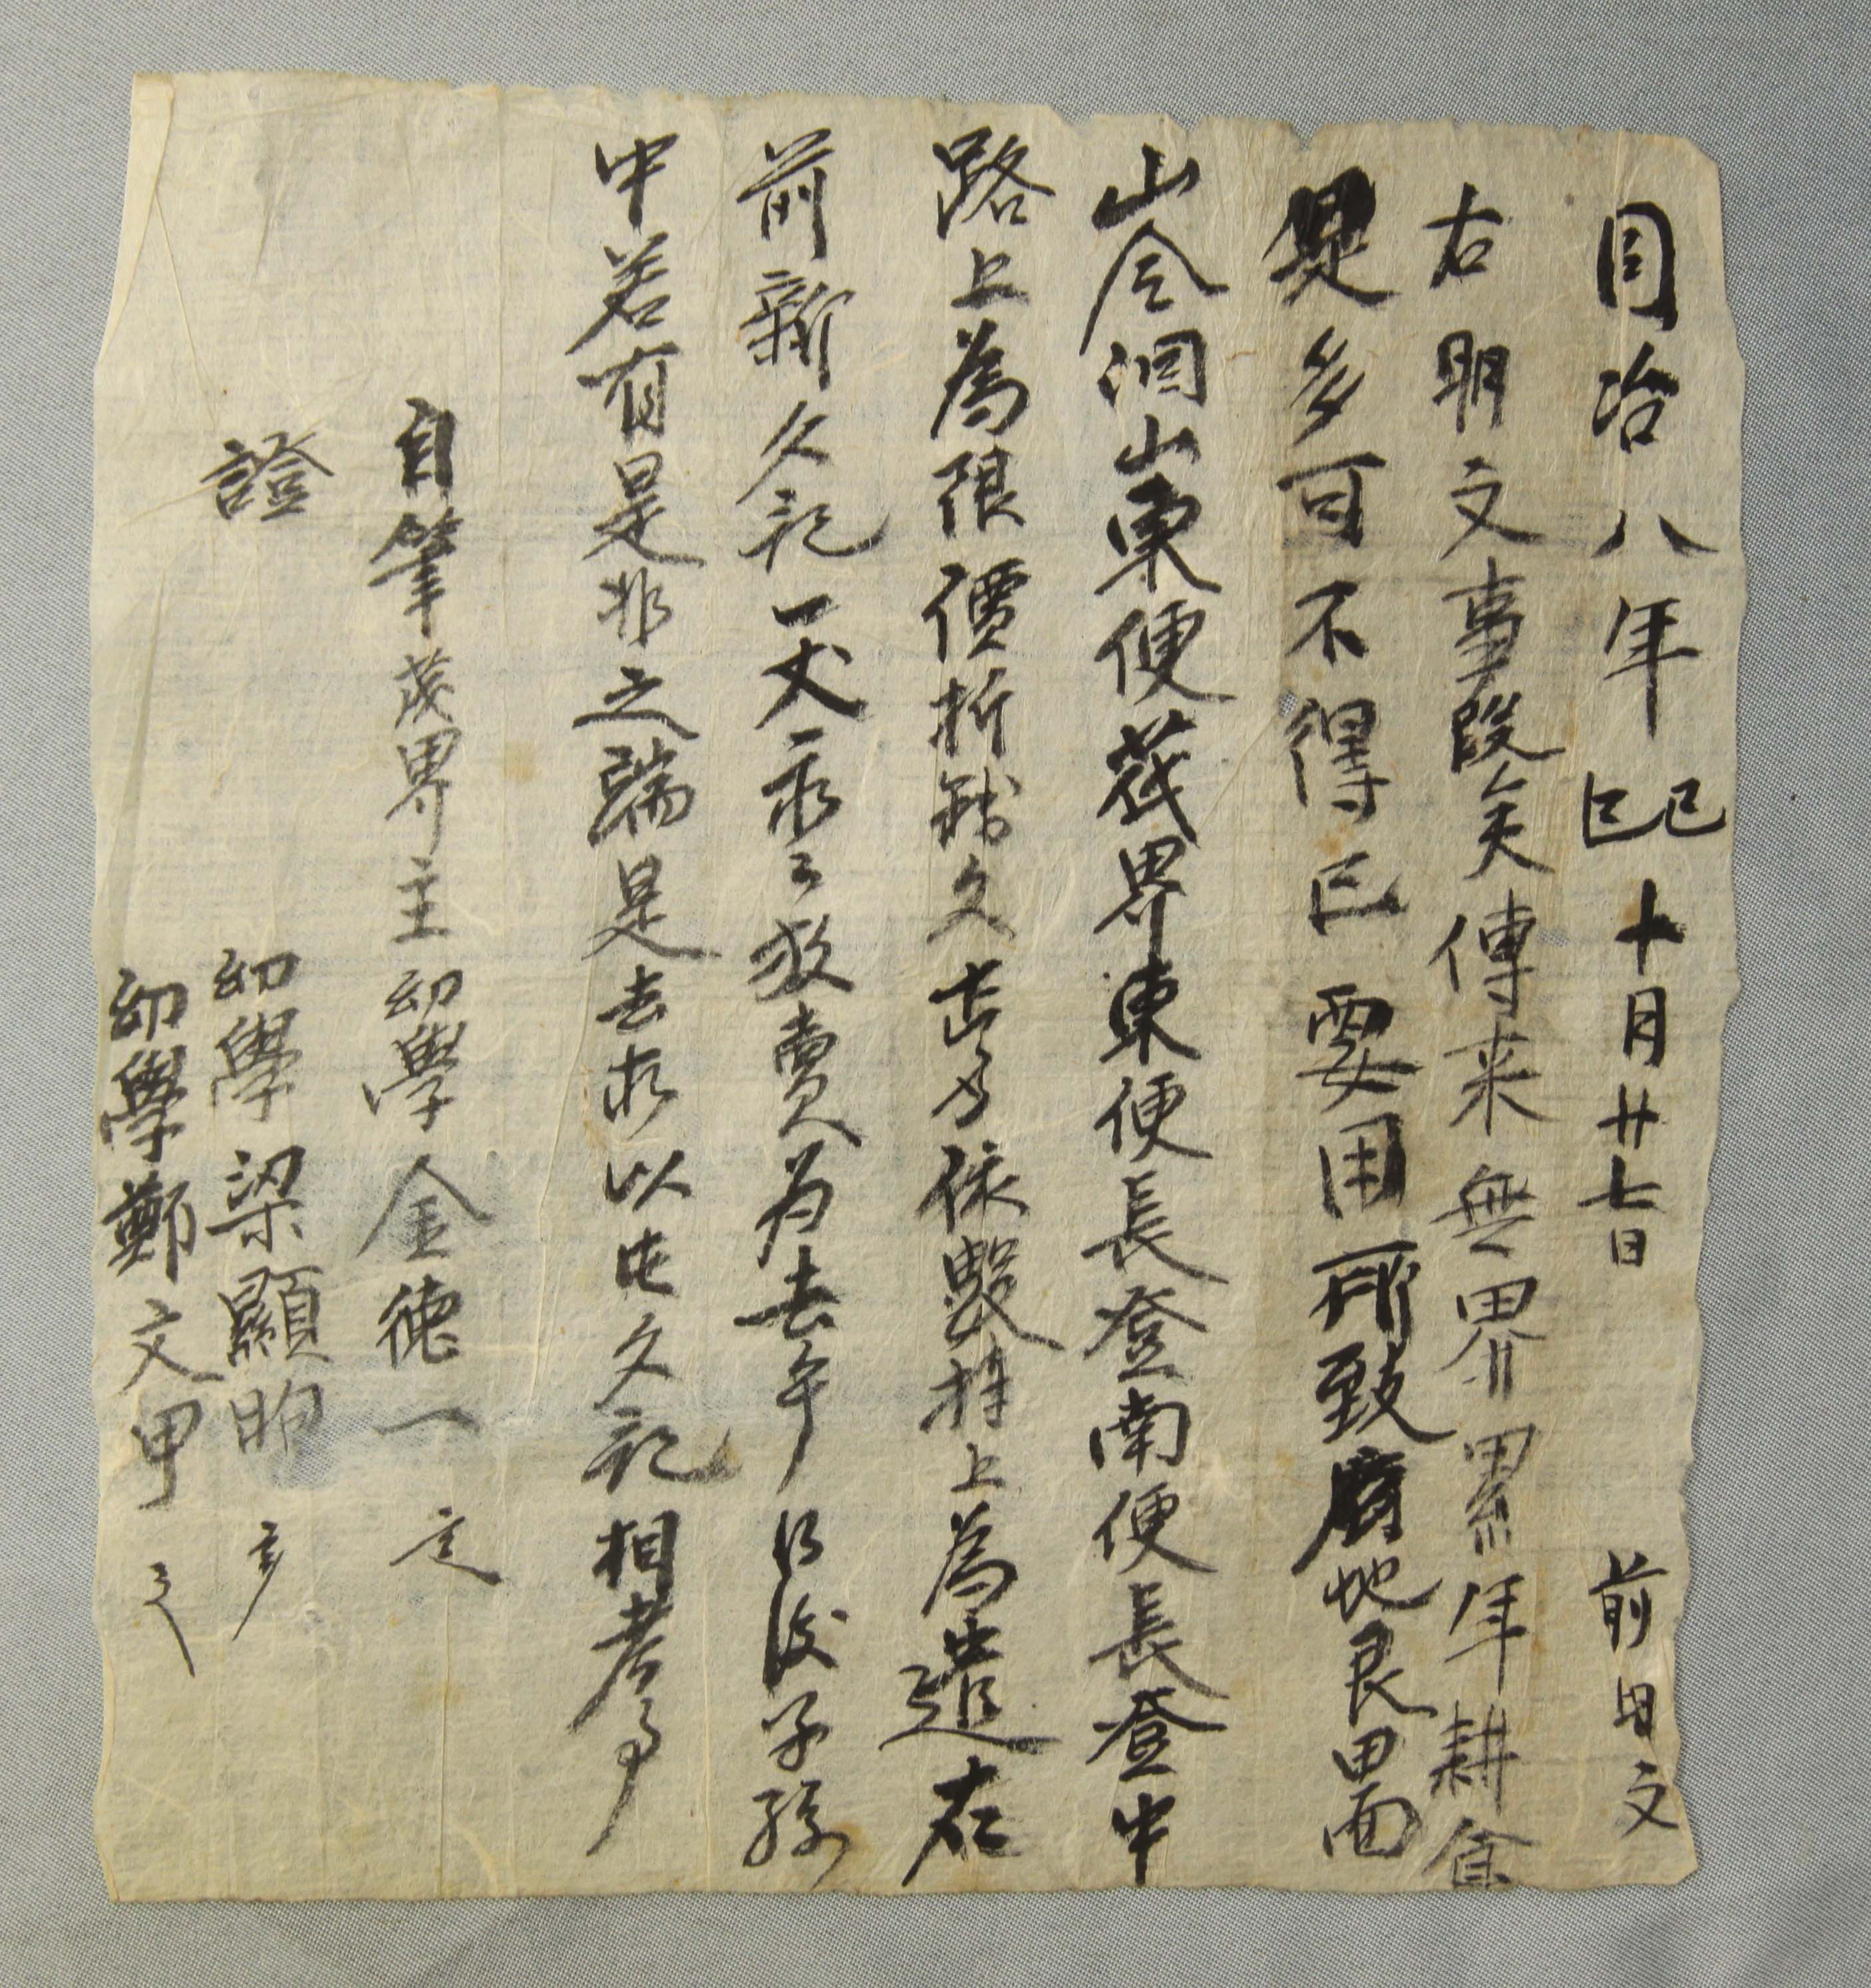 同治八年己巳十月廿七日 前明文
右明文事段矣傳来無界累年耕食
是多可不得已要用所致 地良田面
山仝洞山東便茂界東便長登南便長登中
路上為限價折錢文 依數捧上為遣右
前新文記一丈永々放賣為去乎日後子孫
中若有是非之端是去求以此文記相考事
自筆茂界主幼學金德一
證
幼學梁顯昫
幼學鄭文甲